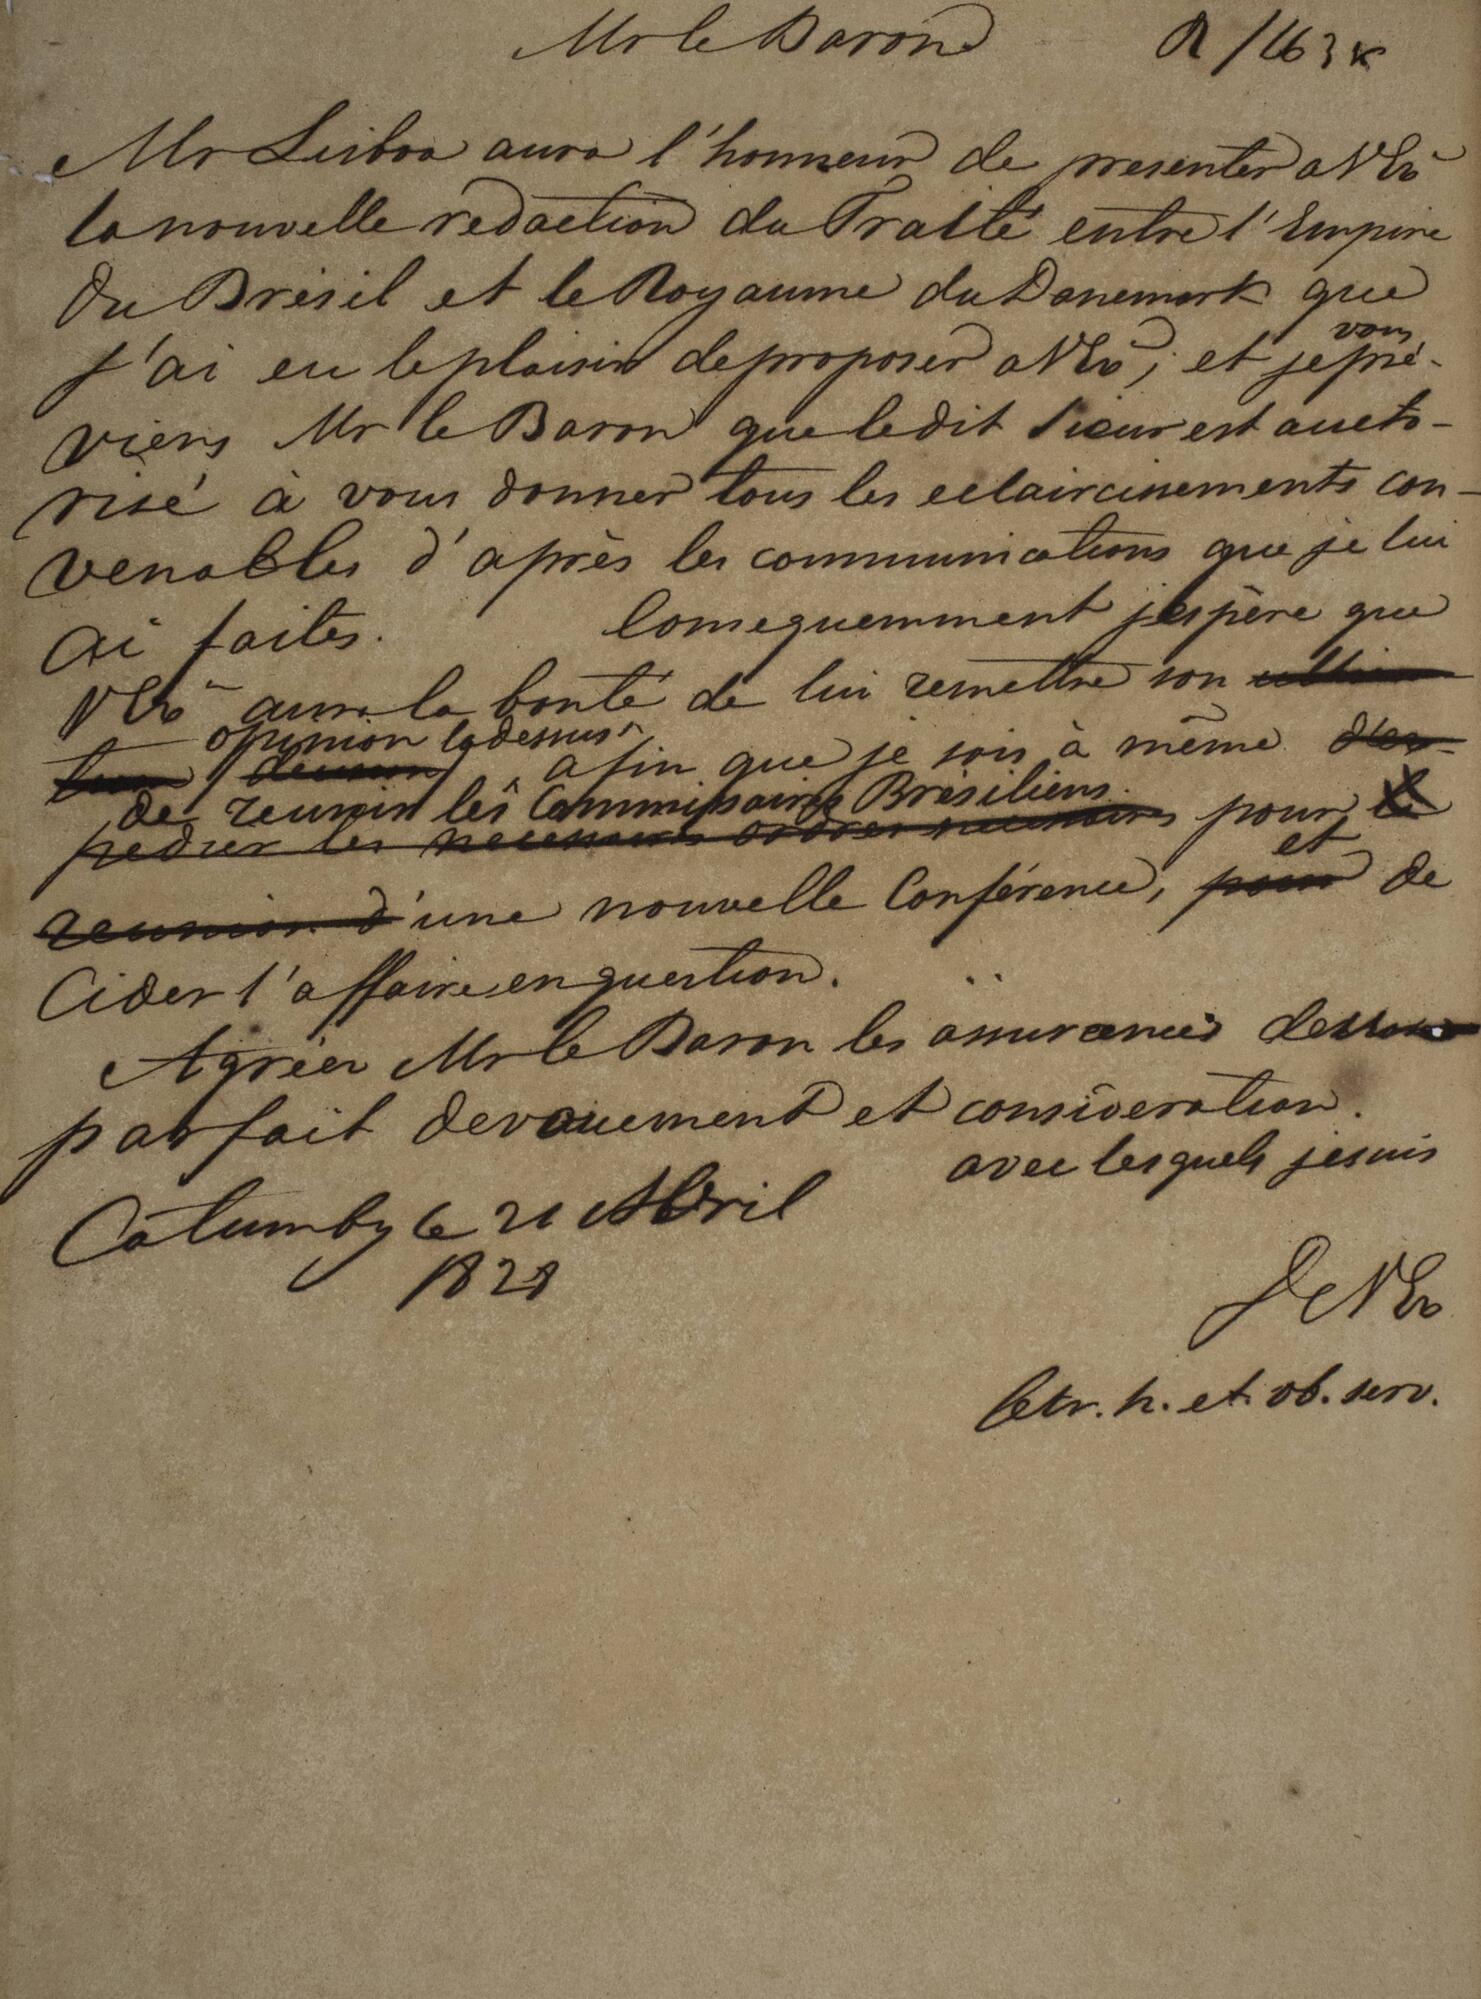 Mr le Baron
Mr Lisboa aura l'honneur de presenter a VEx
la nouvelle redaction du Traité entre l'Empire
du Brésil et le Royaume du Danemark que
j'ai eu le plaisir de proposer a VEx; et je vous pré-
viens Mr le Baron que ledit Sieur est aucto-
risé à vous donner tous les eclaircissements con-
venables d'après les communications que je lui
ai faites. Consequemment j'espère que
VEx aura la bonté de lui remettre son
opinion la dessus
afin que je sois à même
de reunir les Commissaires Brésiliens
pedier les necessaires ordres necessaires pour le
et
reunion d'une nouvelle Conférence, pour de
cider l'affaire en question.
Agréer Mr le Baron les assurances de
parfait devouement et consideration.
avec lesquels je suis
Catumby le 21 Avril
1828
De VEx
le tr. h. et ob. serv.